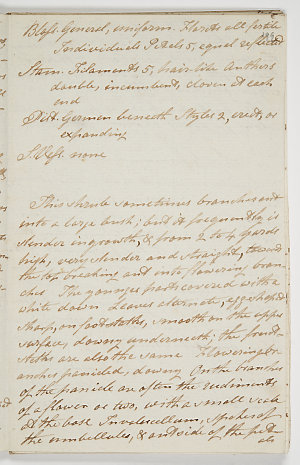 Bloss. General, uniform. Florets all fertile
Individuals Petals 5, equal reflected
Stam. Filaments 5, hair like Anthers
double, incumbent, cloven at each
end
Pist. Germen beneath Styles 2, erect, or
expanding
S. Vess. none
This shrub sometimes branches out
into a large bush; but it frequently is
slender in growth, & from 2 to 4 yards
high, very slender and straight, toward
the top breaking out into flowering bran-
ches The younger parts covered with a
white down Leaves alternate, egg shaped
sharp, on footstalks, smooth on the upper
surface, downy underneath; the foot
stalks are also the same Flowering br-
anches panicled, downy On the branches
of the panicle are often the rudiments
of a flower or two, with a small scale
at the base Involucellum, spokes of
the umbellules, & outside of the pet-
als